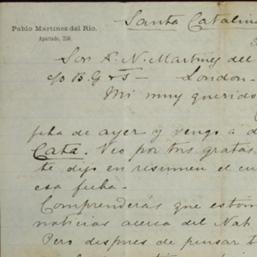 Pablo Martinez del Rio.
Apartado, 236.
Santa Catalina
Sor P. N. Martinez del
c/o B. G & S — London.
Mi muy querido
fcha de ayer y vengo a d
Cata. Veo por tus gratas
te dije en resumen el cu
esa fecha.
Comprenderás que estim
noticias acerca del Nat
Pero despues de pensar t